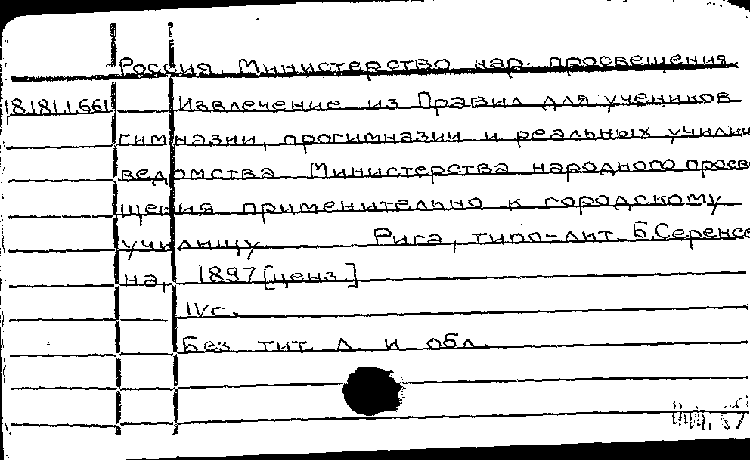 Россия Министерство нар. просвещения.
18.181.1.661
Извлечение из Правил для учеников
гимназии, прогимназии и реальных учили
ведомства Министерства народного просв
щения применительно к городскому
училищу Рига, типо-лит. Б.Серенсе
на, 1897 [ценз.]
IVс.
Без тит. л. и обл.